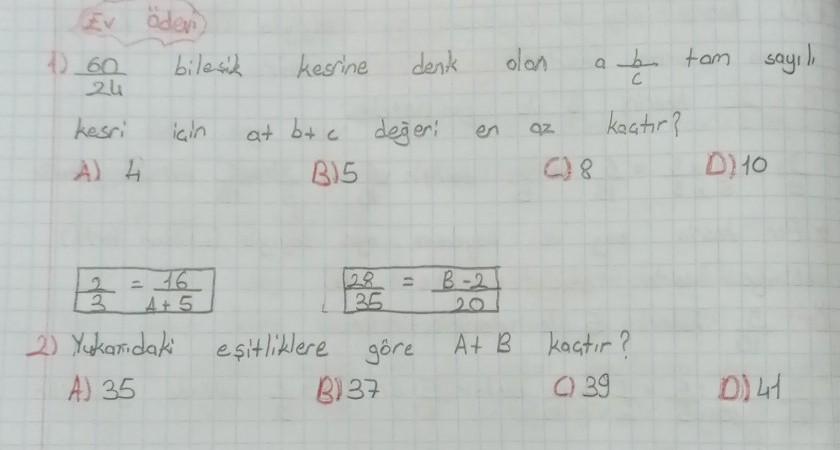 Ev Ödevi
1) 60/24 bileşik kesrine denk olan a b/c tam sayılı
kesri için a+ b+ c değeri en az kaçtır?
A) 4 B) 5 C) 8 D) 10
2/3 = 16/A+5 28/35 = B-2/20
2) Yukarıdaki eşitliklere göre A+ B kaçtır?
A) 35 B) 37 C) 39 D) 41